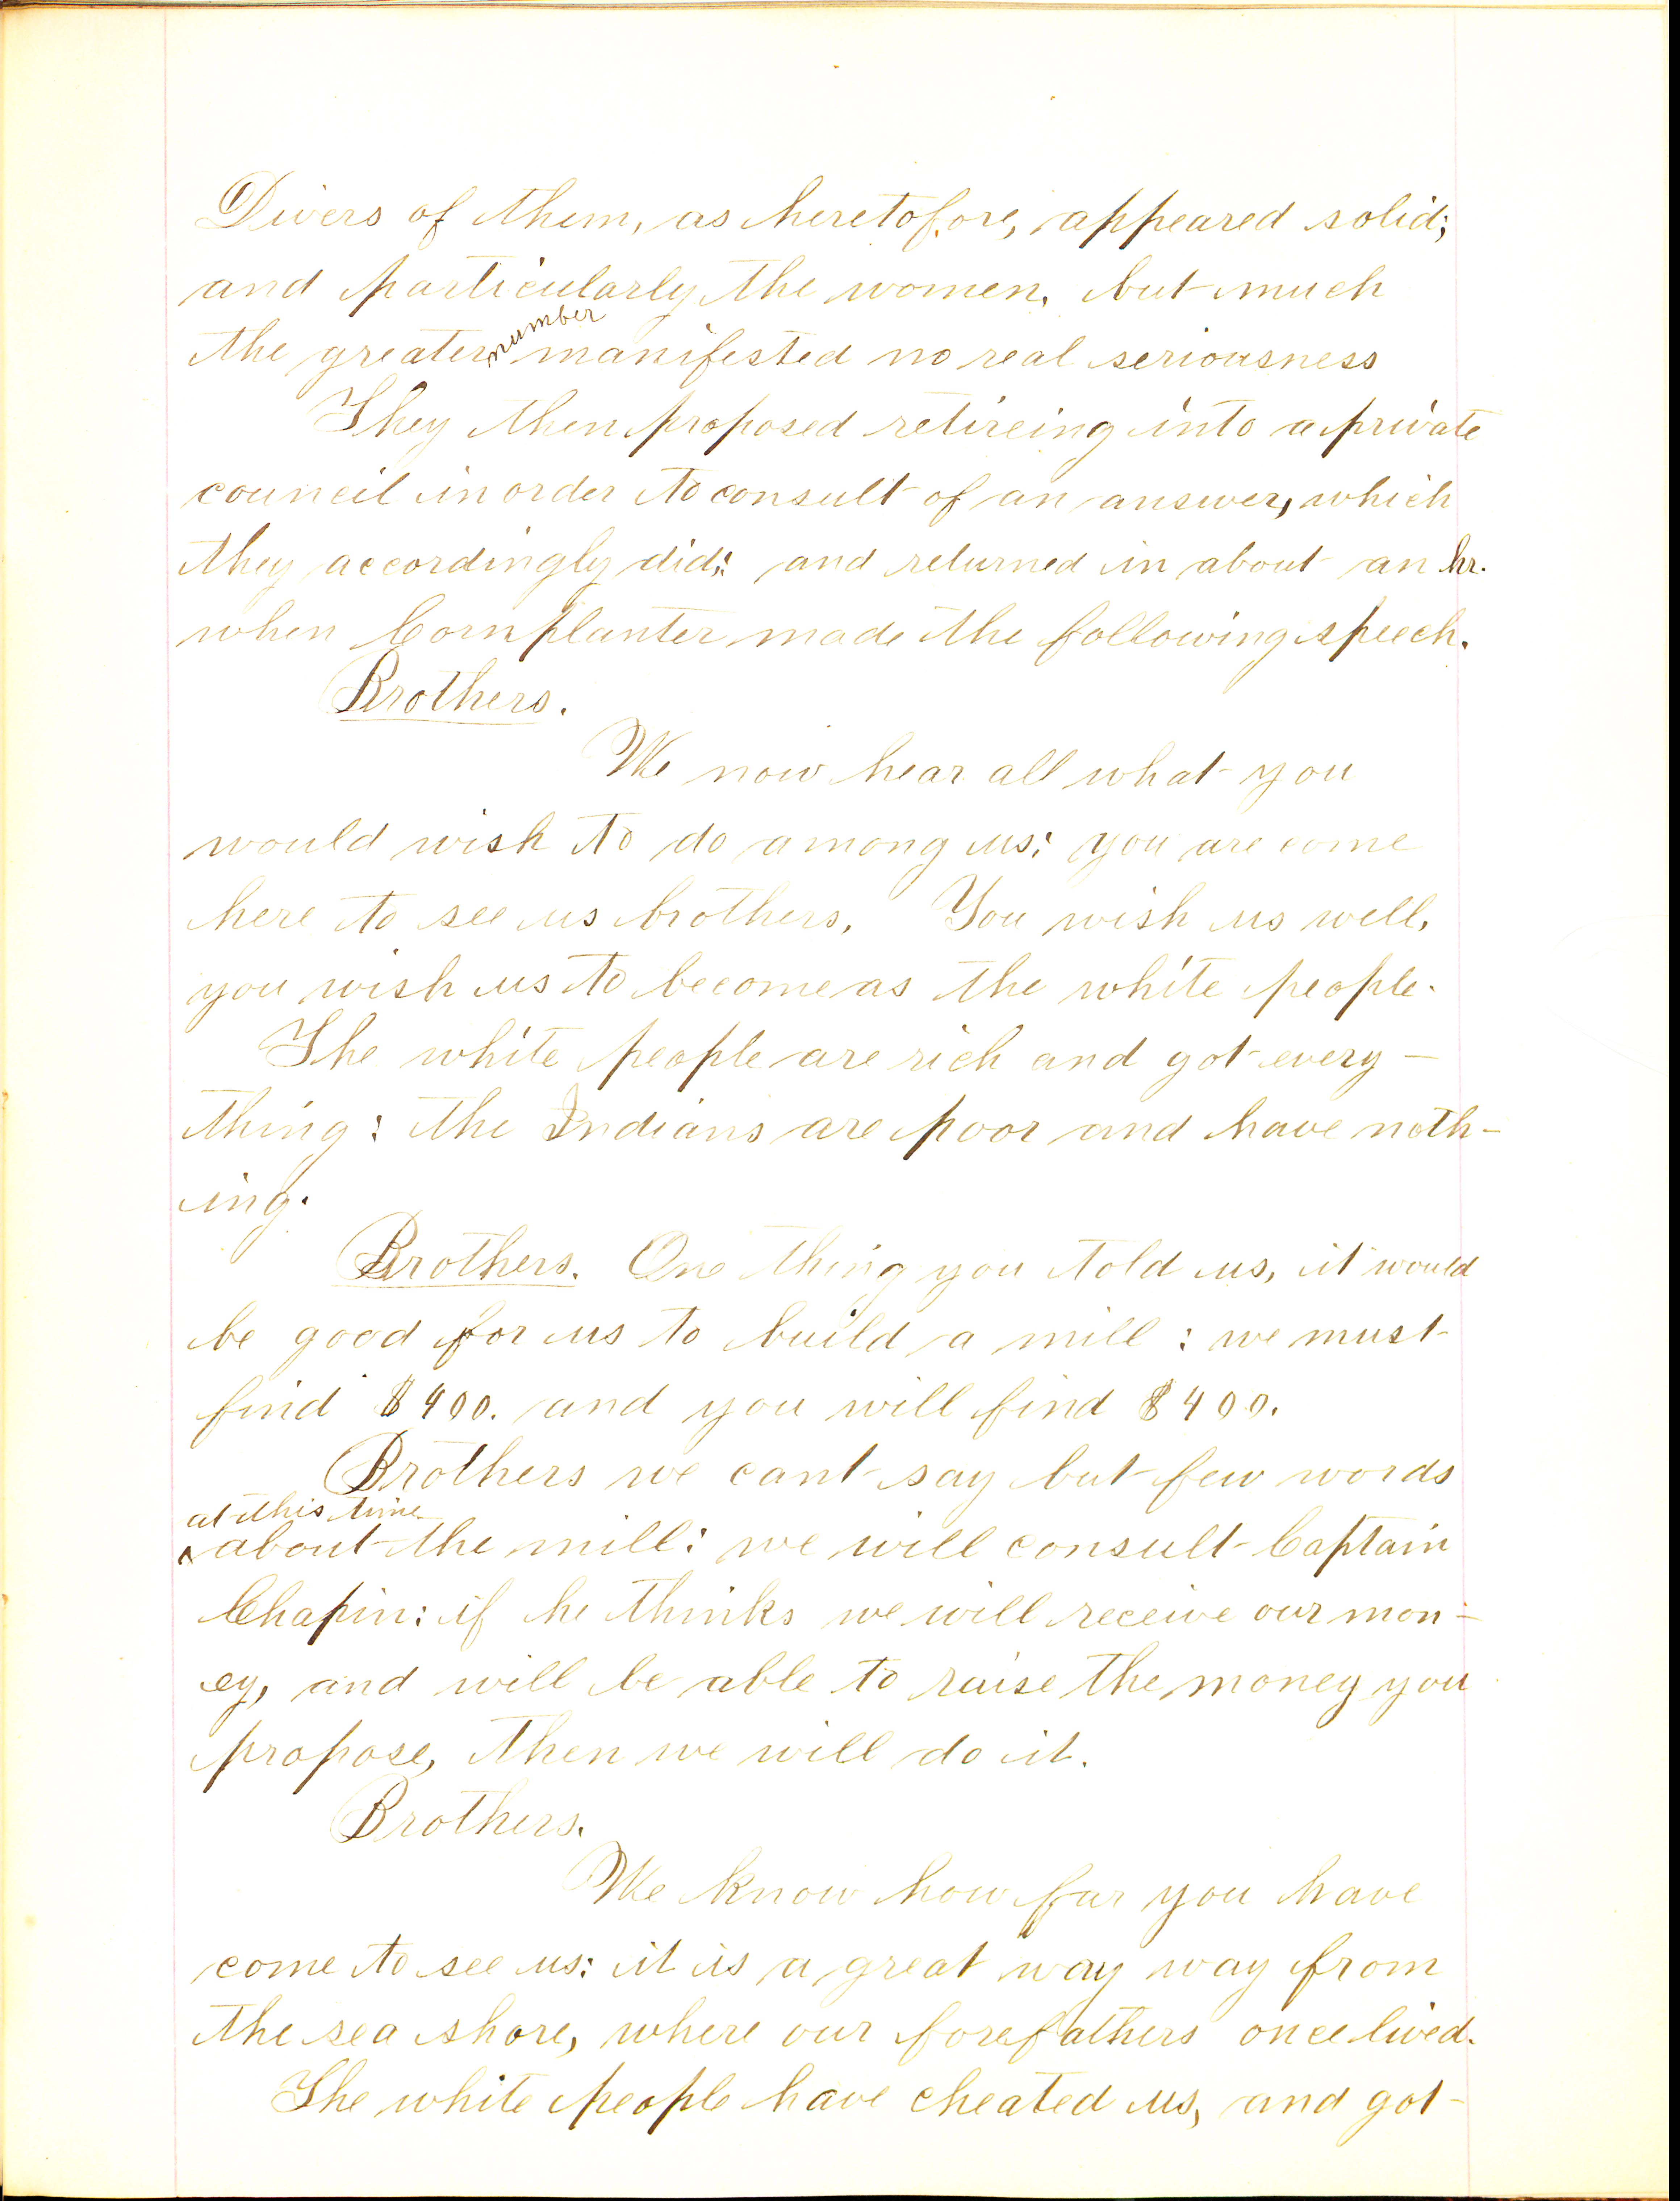 Divers of them, as heretofore, appeared solid;
and particularly the women, but much
number
the greater manifested no real seriousness
They then proposed retireing into a private
council in order to consult of an answer, which
they accordingly did: and returned in about an hr.
when Cornplanter made the following speech.
Brothers.
We now hear all what you
would wish to do among us: you are come
here to see us brothers. You wish us well,
you wish us to become as the white people.
The white people are rich and got every-
thing: the Indians are poor and have noth-
ing.
Brothers. One thing you told us, it would
be good for us to build a mill: we must
find $400. and you will find $400.
Brothers we cant say but few words
at this time
^ about the mill: we will consult Captain
Chapin: if he thinks we will receive our mon-
ey, and will be able to raise the money you
propose, then we will do it.
Brothers.
We know how far you have
come to see us: it is a great way way from
the sea shore, where our forefathers once lived.
The white people have cheated us, and got